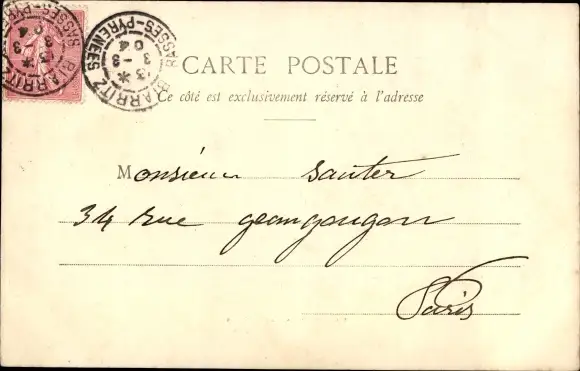 CARTE POSTALE
Ce côté est exclusivement réservé à l'adresse
Monsieur Sauter
34 rue geangougon
Paris
BIARRITZ
BASSES-PYRENEES
3 -3
04
BIARRITZ
BASSES-PYRENEES
3 -3
04